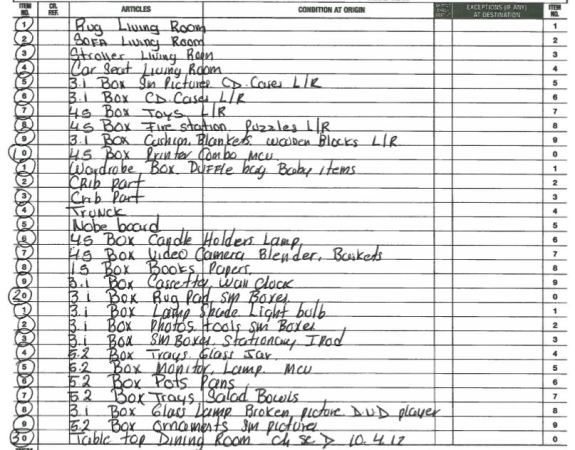 ITEM NO. CR. REF. ARTICLES CONDITION AT ORIGIN EXCEPTIONS (IF ANY) AT DESTINATION ITEM NO.
1 Rug Living Room 1
2 SOFA Living Room 2
3 Stroller Living Room 3
4 Car Seat Living Room 4
5 3.1 Box Sm Pictures CD.Cases L/R 5
6 3.1 Box CD.Cases L/R 6
7 45 Box Toys L/R 7
8 45 Box Fire station, Puzzles L/R 8
9 3.1 Box Cushion, Blankets wooden Blocks L/R 9
10 4.5 Box Printer Combo mcu 0
1 Wardrobe Box. Duffle bag Baby items 1
2 CRib part 2
3 Crib Part 3
4 Trunck 4
5 Nobe board 5
6 45 Box Candle Holders Lamp, 6
7 45 Box Video Camera Blender, Baskets 7
8 15 Box Books Papers, 8
9 3.1 Box Cassette, Wall Clock 9
20 3.1 Box Rug Pad, Sm Boxes 0
1 3.1 Box Lamp Shade Light bulb 1
2 3.1 Box Photos tools Sm Boxes 2
3 3.1 Box Sm Boxes. Stationary IPod 3
4 5.2 Box Trays, Glass Jar. 4
5 5.2 Box Monitor, Lamp. mcu 5
6 5.2 Box Pots Pans, 6
7 5.2 Box Trays, Salad Bowls 7
8 3.1 Box Glass Lamp Broken, picture DVD player 8
9 5.2 Box Ornaments Sm picture 9
30 Table top Dining Room 10.4.17 0